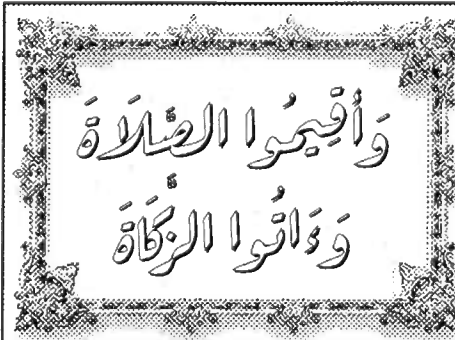 وَأَقِيمُوا الصَّلَاةَ
وَءَاتُوا الزَّكَاةَ